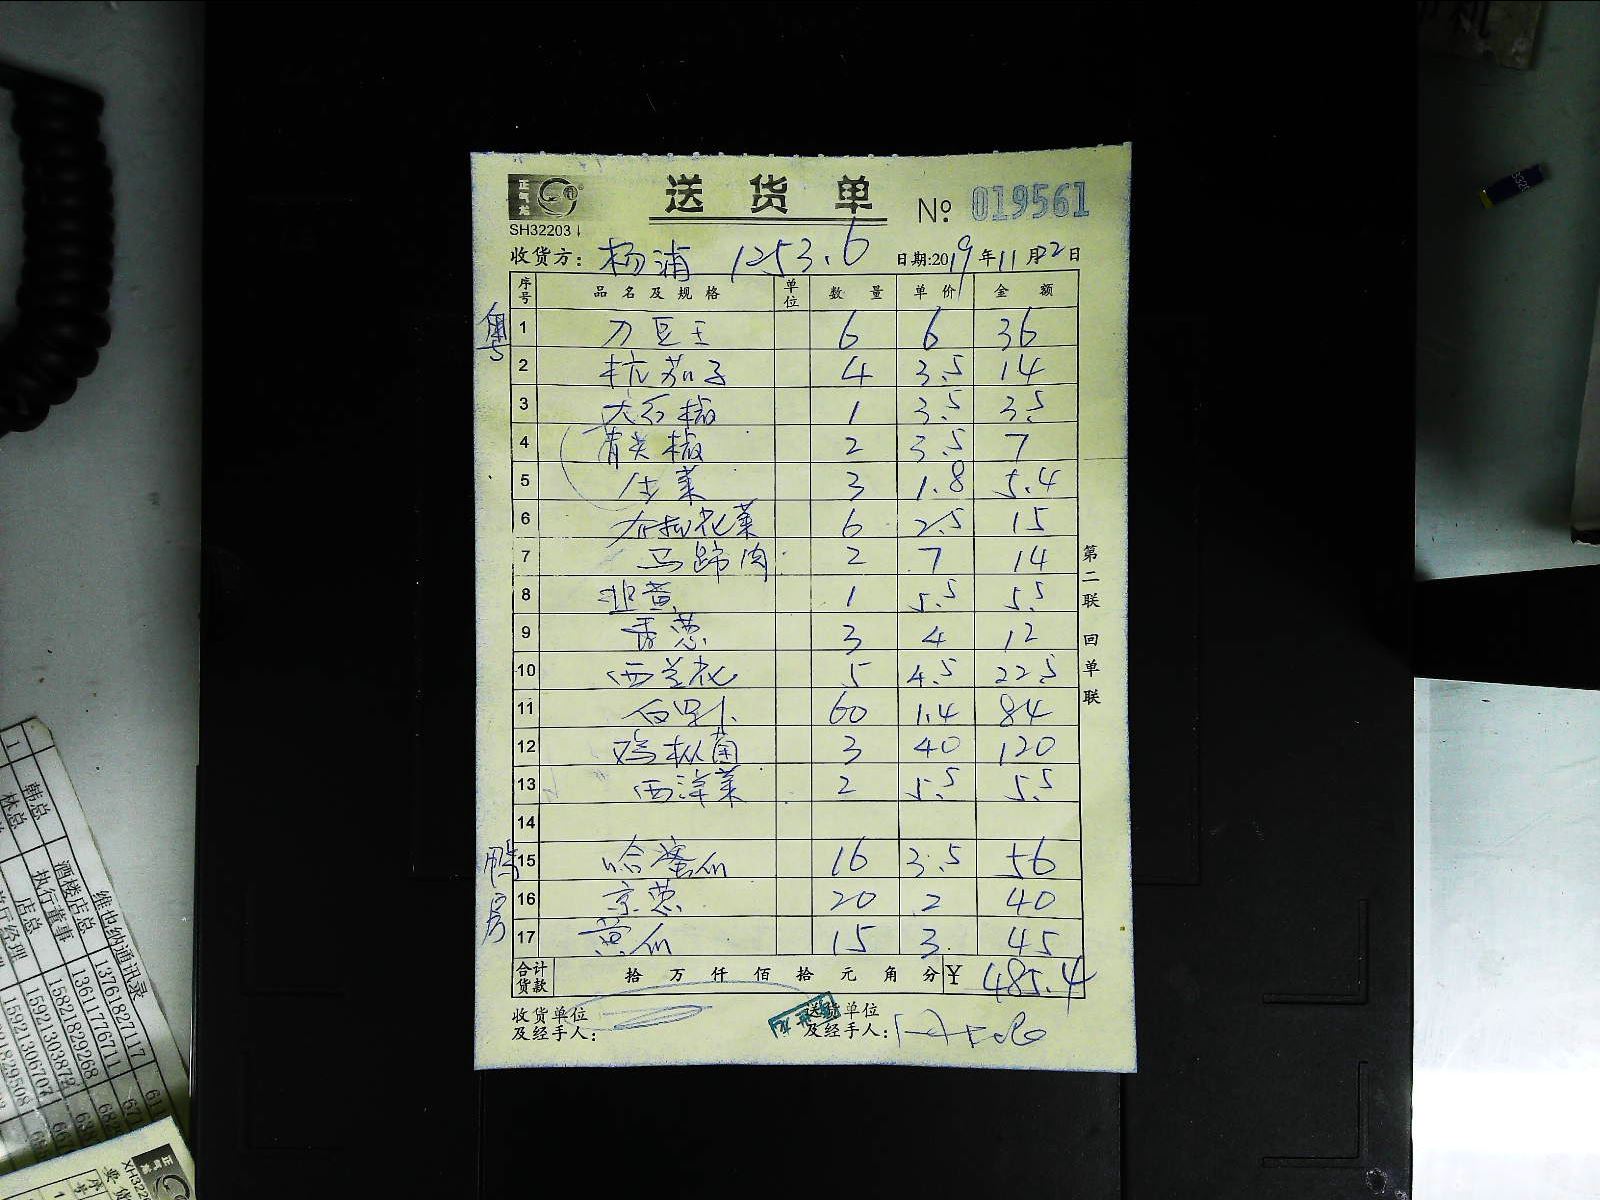 正气龙
送货单
№ 019561
SH32203
收货方: 杨浦 1253.6 日期:2019年11月22日
序号 品名及规格 单位 数量 单价 金额
粤
1 刀豆王 6 6 36
2 杭茄子 4 3.5 14
3 大红椒 1 3.5 3.5
4 青尖椒 2 3.5 7
5 生菜 3 1.8 5.4
6 花菜 6 2.5 15
7 马蹄肉 2 7 14
8 韭黄 1 5.5 5.5
9 香葱 3 4 12
10 西兰花 5 4.5 22.5
11 白 卜 60 1.4 84
12 鸡枞菌 3 40 120
13 西洋菜 2 5.5 5.5
14
鸭房
15 哈蜜瓜 16 3.5 56
16 京葱 20 2 40
17 黄瓜 15 3 45
合计货款 拾万仟佰拾元角分 ¥ 485.4
收货单位及经手人:
送货单位及经手人:
第二联 回单联
维也纳通讯录
韩总 酒楼店总 13761827117
林总 执行董事 13611776711
店总 15821829268